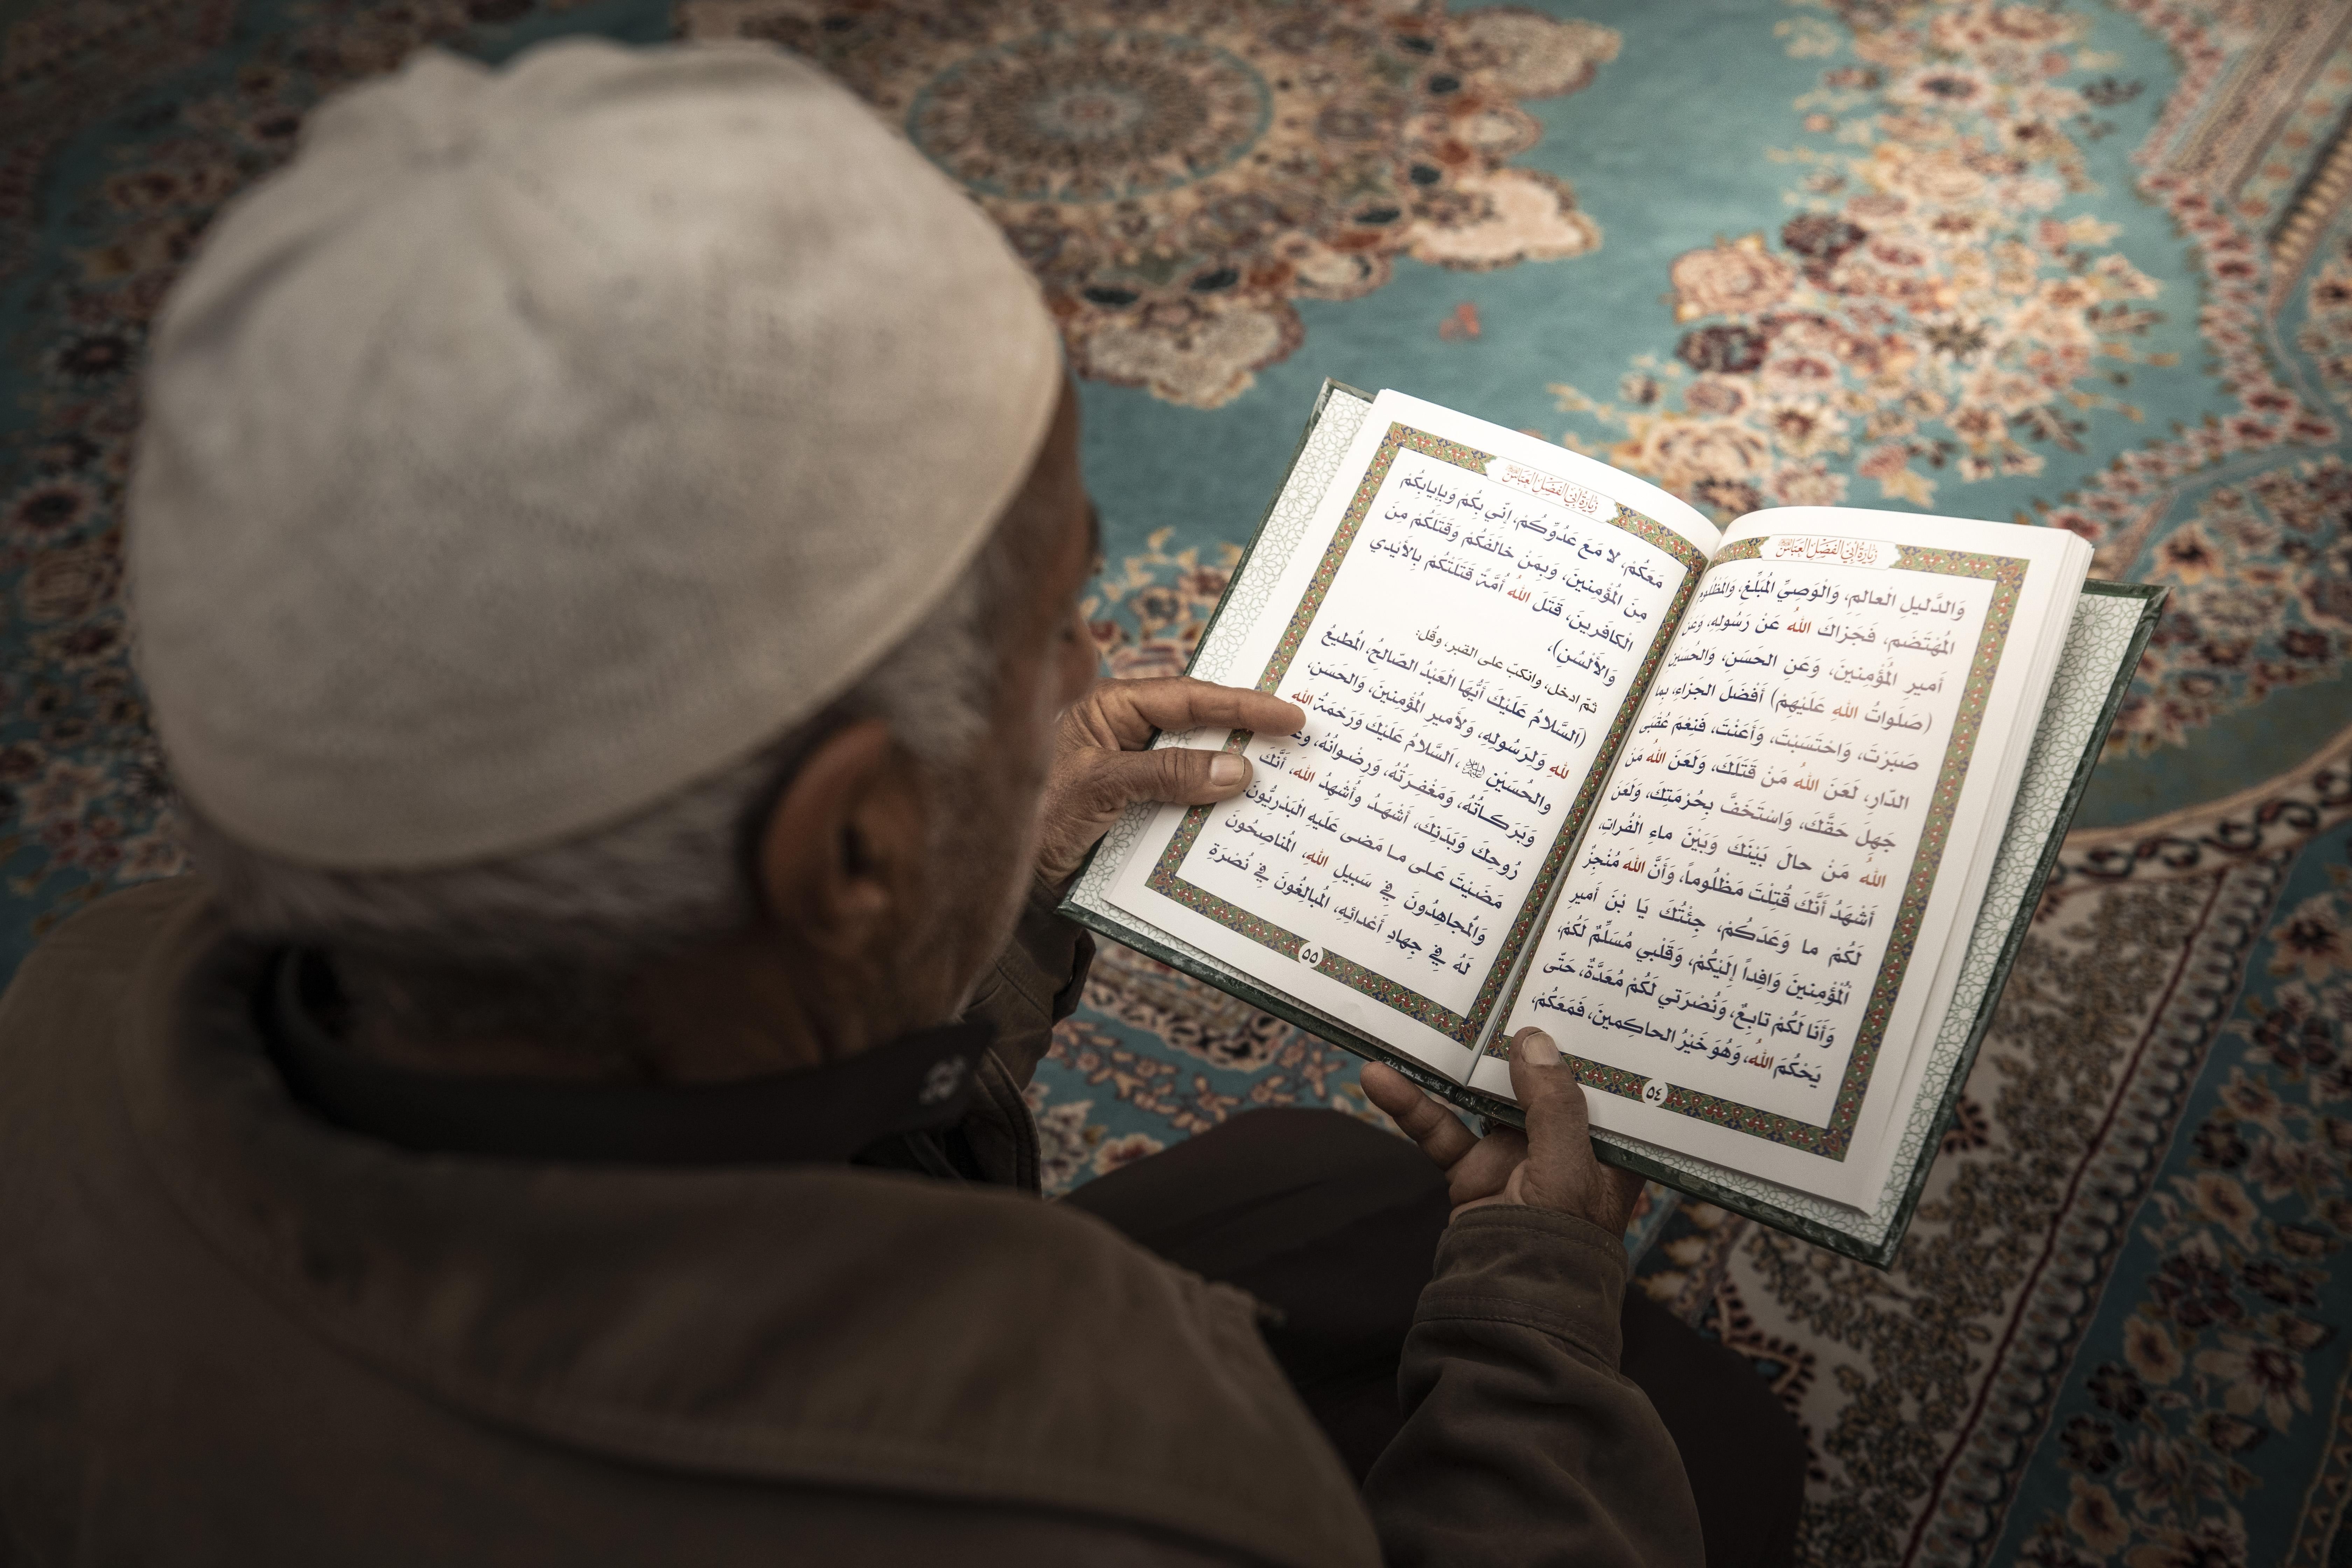 زِيَارَةُ أَبِي الفَضْلِ العَبَّاسِ
وَالدَّلِيلِ الْعالِمِ، وَالْوَصِيِّ المُبَلِّغِ، وَالمَظْلُومِ
المُهْتَضَمِ، فَجَزَاكَ اللهُ عَنْ رَسُولِهِ، وَعَنْ
أَمِيرِ المُؤْمِنِينَ، وَعَنِ الحَسَنِ، وَالحُسَيْنِ
(صَلَواتُ اللهِ عَلَيْهِمْ) أَفْضَلَ الجَزَاءِ، بِما
صَبَرْتَ، وَاحْتَسَبْتَ، وَأَعَنْتَ، فَنِعْمَ عُقْبَى
الدّارِ، لَعَنَ اللهُ مَنْ قَتَلَكَ، وَلَعَنَ اللهُ مَنْ
جَهِلَ حَقَّكَ، وَاسْتَخَفَّ بِحُرْمَتِكَ، وَلَعَنَ
اللهُ مَنْ حالَ بَيْنَكَ وَبَيْنَ ماءِ الْفُراتِ،
أَشْهَدُ أَنَّكَ قُتِلْتَ مَظْلُوماً، وَأَنَّ اللهَ مُنْجِزٌ
لَكُمْ ما وَعَدَكُمْ، جِئْتُكَ يَا بْنَ أَمِيرِ
الْمُؤْمِنِينَ وَافِداً إِلَيْكُمْ، وَقَلْبِي مُسَلِّمٌ لَكُمْ،
وَأَنَا لَكُمْ تابِعٌ، وَنُصْرَتِي لَكُمْ مُعَدَّةٌ، حَتّى
يَحْكُمَ اللهُ، وَهُوَ خَيْرُ الحاكِمِينَ، فَمَعَكُمْ،
٥٤
زِيَارَةُ أَبِي الفَضْلِ العَبَّاسِ
مَعَكُمْ، لا مَعَ عَدُوِّكُمْ، إِنّي بِكُمْ وَبِإِيابِكُمْ
مِنَ المُؤْمِنِينَ، وَبِمَنْ خالَفَكُمْ وَقَتَلَكُمْ مِنَ
الْكافَرِينَ، قَتَلَ اللهُ أُمَّةً قَتَلَتْكُمْ بِالأَيْدِي
وَالأَلْسُنِ)،
ثمّ ادخل، وانكبّ على القبر، وقُل:
(اَلسَّلامُ عَلَيْكَ أَيُّهَا الْعَبْدُ الصّالِحُ، المُطِيعُ
للهِ وَلِرَسُولِهِ، وَلأَمِيرِ المُؤْمِنِينَ، وَالحَسَنِ،
والحُسَيْنِ ﷺ، اَلسَّلامُ عَلَيْكَ وَرَحْمَةُ اللهِ
وَبَرَكاتُهُ، وَمَغْفِرَتُهُ، وَرِضْوانُهُ،
رُوحِكَ وَبَدَنِكَ، أَشْهَدُ وَأُشْهِدُ اللهَ، أَنَّكَ
مَضَيْتَ عَلى ما مَضى عَلَيْهِ الْبَدْرِيُّونَ،
وَالمُجاهِدُونَ فِي سَبِيلِ اللهِ، المُناصِحُونَ
لَهُ فِي جِهادِ أَعْدائِهِ، المُبالِغُونَ فِي نُصْرَةِ
٥٥